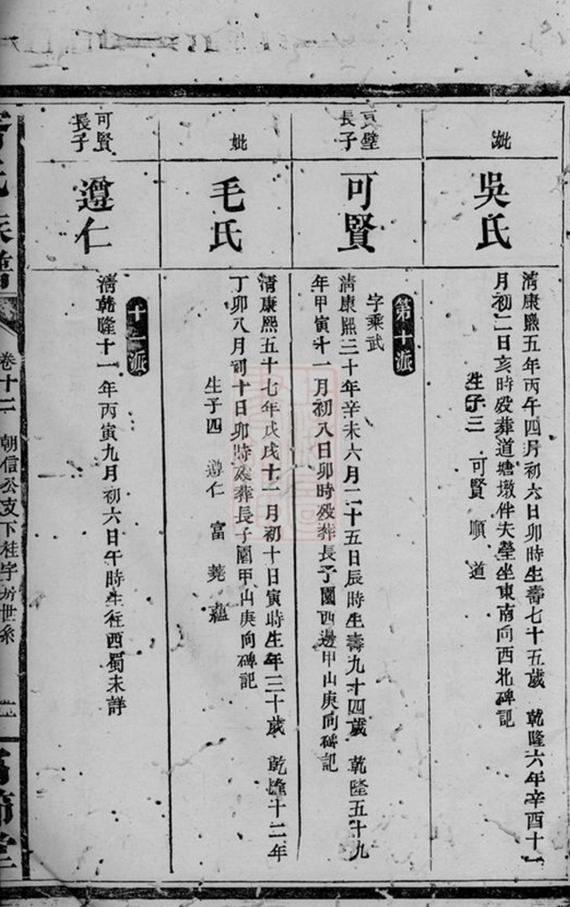 妣
吳氏
清康熙五年丙午四月初六日卯時生壽七十五歲 乾隆六年辛酉十一
月初二日亥時歿葬道塘墩伴夫塋坐東南向西北碑記
生子三 可賢 順 道
長子
可賢
第十派
字乘武
清康熙三十年辛未六月二十五日辰時生壽九十四歲 乾隆五十九
年甲寅十一月初八日卯時歿葬長子園西邊甲山庚向碑記
妣
毛氏
清康熙五十七年戊戌十一月初十日寅時生年三十歲 乾隆十二年
丁卯八月初十日卯時歿葬長子園甲山庚向碑記
生子四 遵仁 富 蕘 蘊
可賢
長子
遵仁
十一派
清乾隆十一年丙寅九月初六日午時生往西蜀未詳
氏族譜
卷十二 朝信公支下桂字房世系